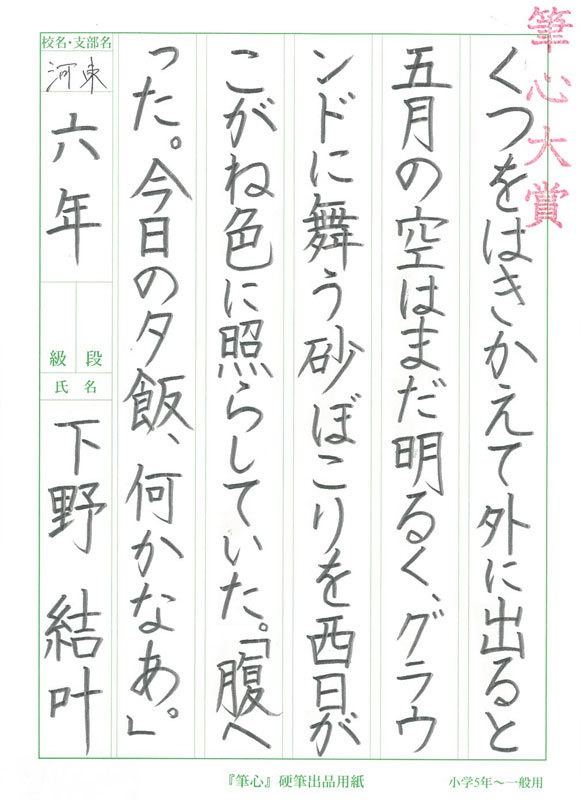 筆心大賞
くつをはきかえて外に出ると
五月の空はまだ明るく、グラウ
ンドに舞う砂ぼこりを西日が
こがね色に照らしていた。「腹へ
った。今日の夕飯、何かなあ。」
校名・支部名
河東
六年
段
級
氏名
下野 結叶
『筆心』硬筆出品用紙
小学5年〜一般用